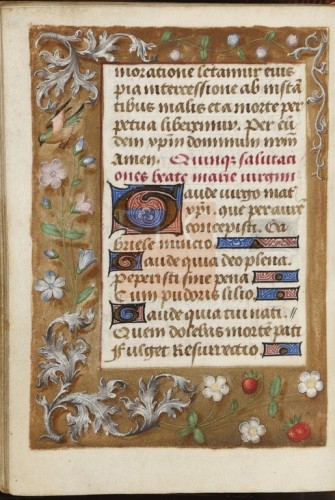 moratione letamur eius
pia intercessione ab instan
tibus malis et a morte per
petua liberemur. Per eū
dem xp̄m dominum nr̄m
Amen. Quinqꝫ salutati
ones beate marie virginis
Gaude virgo mat̄
xp̄i. que per aurē
concepisti. Ga
briele nuncio
Gaude quia deo plena.
Peperisti sine pena
Cum pudoris lilio.
Gaude quia tui nati.
Quem dolebas mortē pati
Fulget Resurrectio